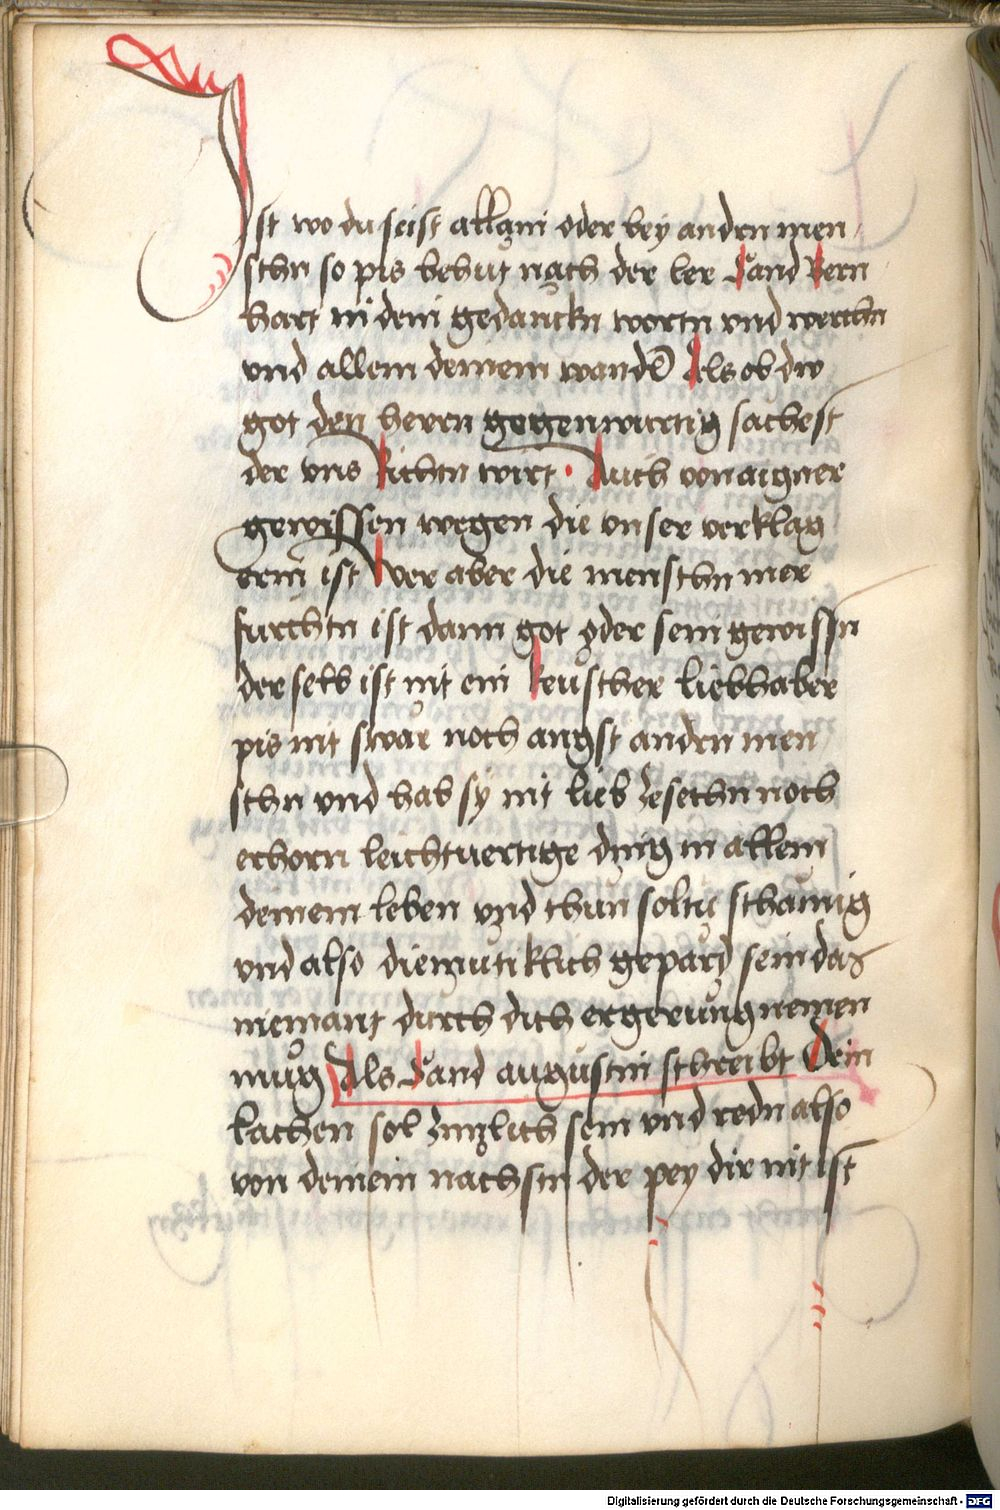 Ist wo du seist allain oder bey andrn men
schn so pis behut nach der ler Sand Bern
hart in dein gedanckn wortn vnd werckhn
vnd allem deinem wandl Als ob dw
got den herrn gegenwurtig sachest
der vns Richtn wirt · Auch von aigner
gewissen wegen die vnser verklag
erin ist Wer aber die menschn mer
furchtn ist dann got oder sein gewissn
der selb ist nit ein keuscher liebhaber
pis nit swär noch angst andrn men
schn vnd hab sy nit lieb zesechn noch
erhorn leichtuertige ding in allem
deinem leben vnd thun soltu schamig
vnd also diemutiklich gepard sein das
niemant durch dich ergerung nemen
mug Als Sand augustin schreibt Dein
lachen sol zimlich sein vnd redn also
von deinem nachstn der pey dir nit ist
Digitalisierung gefördert durch die Deutsche Forschungsgemeinschaft - DFG